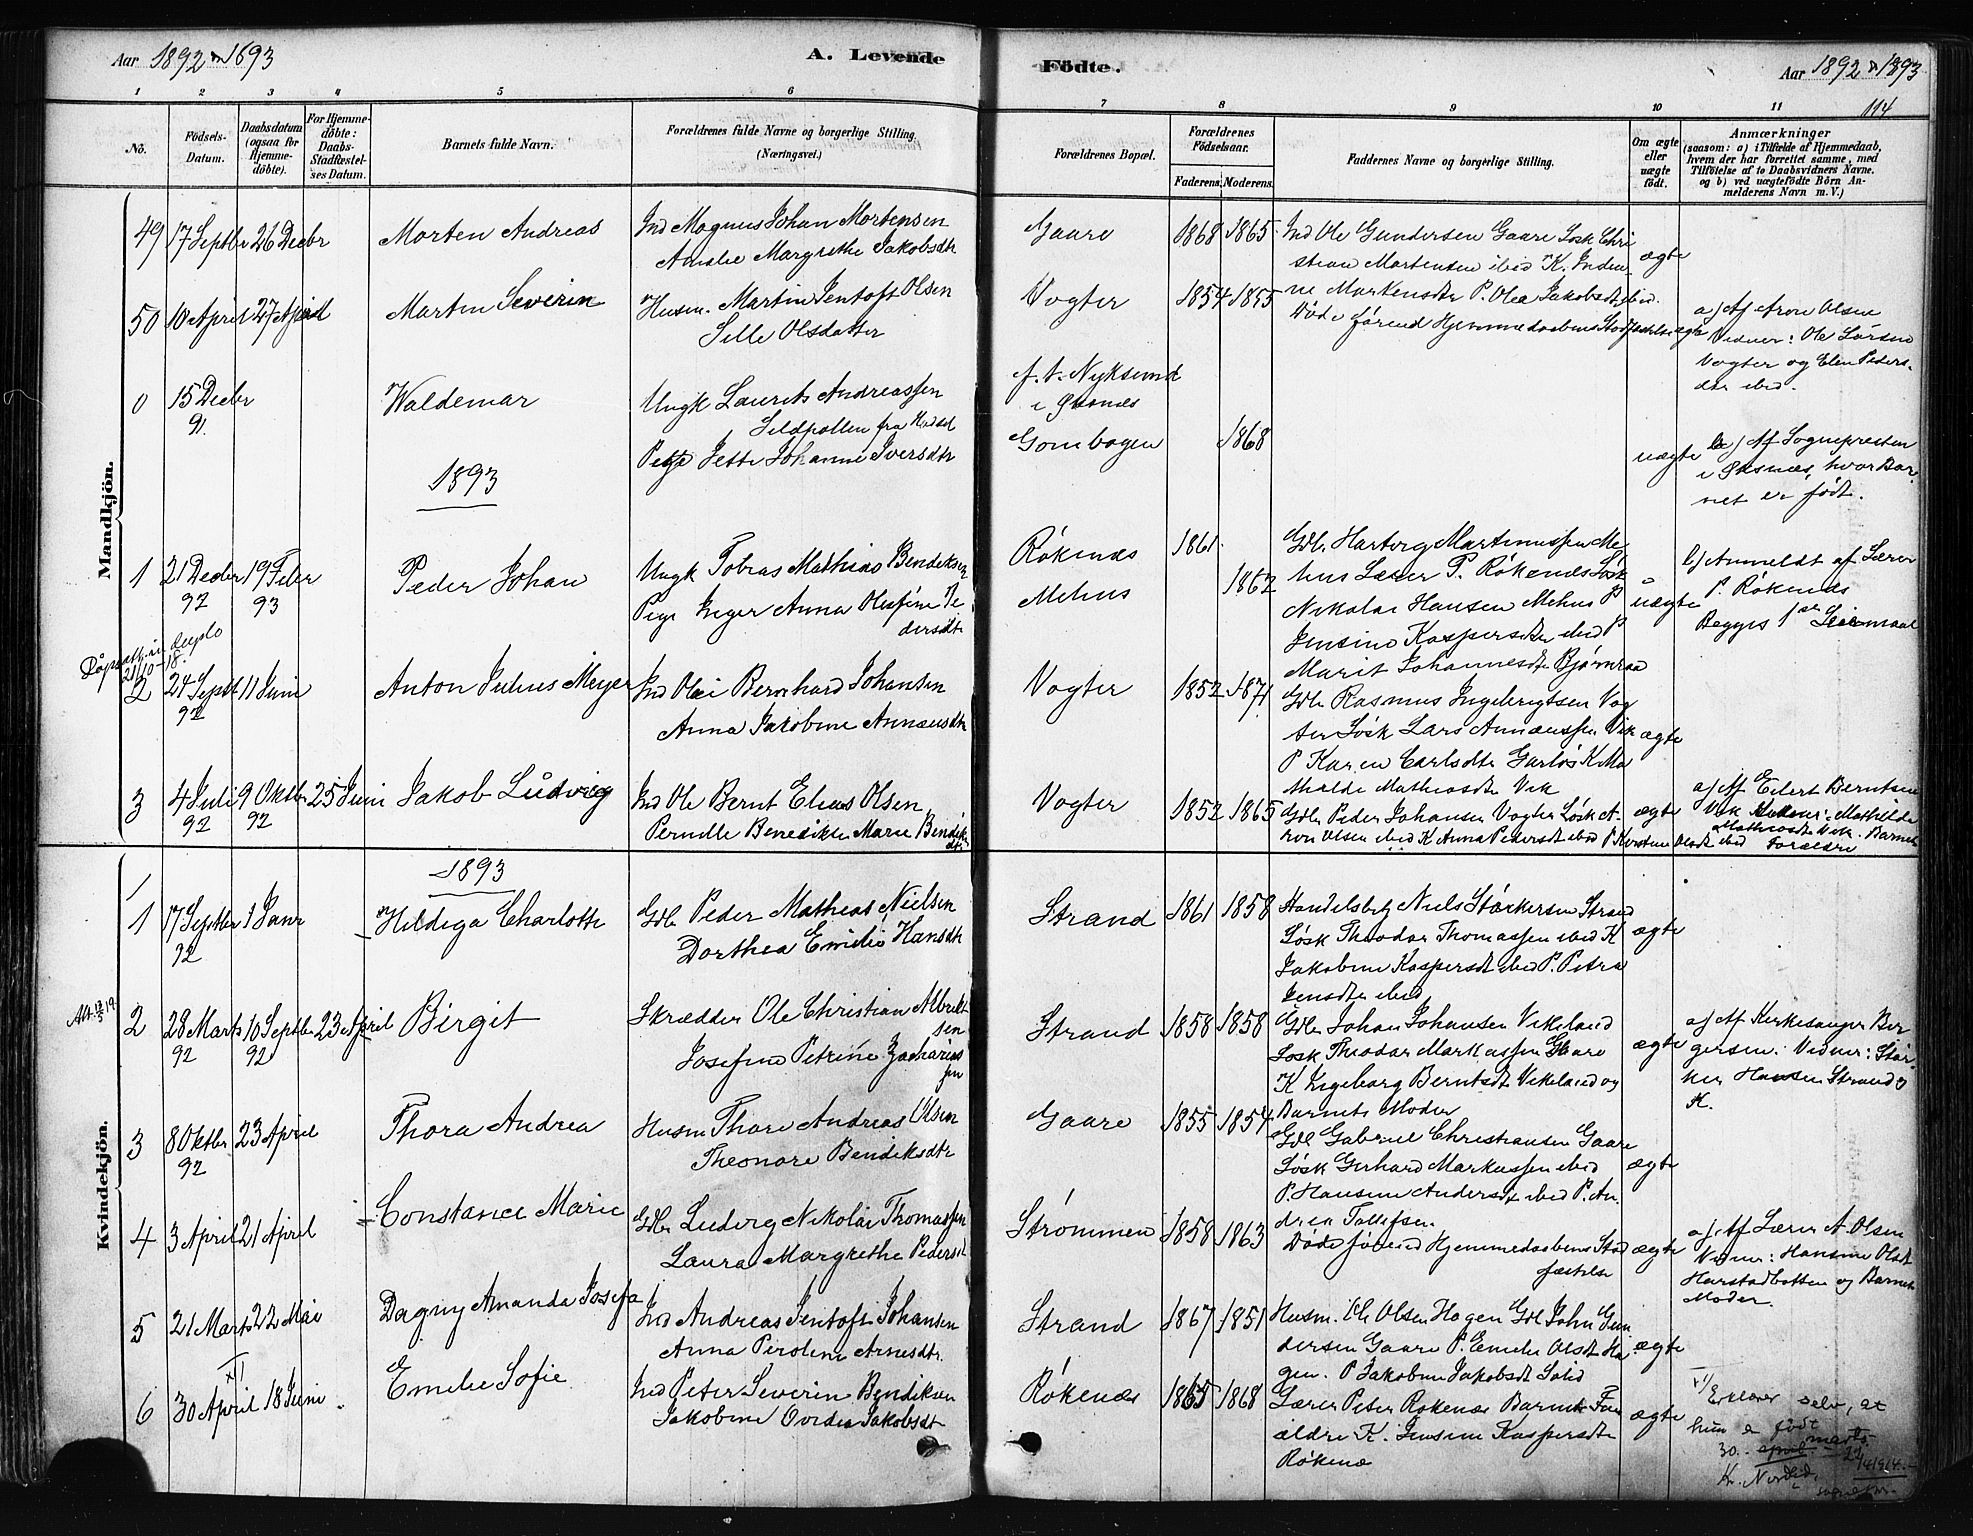 Aar 1892 & 1893
A. Levende
Födte.
Aar 1892 & 1893
114
1 2 3 4 5 6 7 8 9 10 11
No.
Födsels-
Datum.
Daabsdatum
(ogsaa for
Hjemme-
döbte).
For Hjemme-
döbte:
Daabs-
Stadfæstel-
ses Datum.
Barnets fulde Navn.
Forældrenes fulde Navne og borgerlige Stilling.
(Næringsvei.)
Forældrenes Bopæl.
Forældrenes
Födselsaar.
Faderens. Moderens.
Faddernes Navne og borgerlige Stilling.
Om ægte
eller
uægte
födt.
Anmærkninger
(saasom: a) i Tilfælde af Hjemmedaab,
hvem der har forrettet samme, med
Tilföielse af to Daabsvidners Navne.
og b) ved uægtefödte Börn An-
melderens Navn m. V.)
Mandkjön.
49 17 Septbr 26 Decbr Morten Andreas
Ind Magnus Johan Mortensen
Amalie Margrethe Jakobsdtr
Gaare 1868 1865
Ind Ole Gundersen Gaare Løsk Chri
stian Mortensen ibid K.
ne P. Olea Jakobsdt ibid.
ægte
50 10 April 27 April Martin Severin
Husm. Martin Jentoft Olsen
Sille Olsdatter
Vogter 1854 1855
Døde førend Hjemmedaabens Stadfæstelse ægte
a) Af Aron Olsen
Vidner: Ole
Vogter og Elen Peders-
dtr ibid.
0 15 Decbr
91.
Waldemar
Ungk Laurits Andreassen
Sildpollen fra Hadsel
Pige Jette Johanne Iversdtr
f. t. Nyksund
i Øksnes
Gombogen 1868
uægte
b) Af Sognepresten
i Øksnæs, hvor Bar-
net er født.
1893
1 21 Decbr 19 Febr
92 93
Peder Johan
Ungk Tobias Mathias Bendiksen
Pige Inger Anna Olufine Pe
dersdtr
Røkenæs 1861.
Mehus 1862
Gdb. Hartvig Martinussen Me
hus Lærer P. Røkenæs Løsk
Nikolai Hansen Mehus P
Jensine Kaspersdtr ibid P
Marit Johannesdtr Bjørnraa
uægte
b) Anmeldt af Lærer
P. Røkenæs
Begges 1ste Leiermaal
21/10-18.
2 24 Septbr 11 Juni
92
Anton Julius Meyer
Ind Olai Bernhard Johansen
Anna Jakobine Annæusdtr
Vogter 1852 1871
Gdb Rasmus Ingebrigtsen Vog
ter Løsk Lars Annæussen Vik
P Karen Carlsdtr Garløs K Ma
thilde Mathiasdt Vik
ægte
3 4 Juli 9 Oktbr 25 Juni
92 92
Jakob Ludvig
Ind Ole Bernt Elias Olsen
Pernille Benedikte Marie Bendik
dtr
Vogter 1852 1865
Gdb Peder Johansen Vogter Løsk A-
ron Olsen ibid K Anna Pedersdt ibid P Kirstine Olsdt ibid
ægte
a) Af Eilert Berntsen
Vik Vidner: Mathilde
Mathiasdt Vik. Barnets
Forældre
Kvindekjön.
1893
1 17 Septbr 1 Janr
92
Hildiga Charlotte
Gdb Peder Mathias Nielsen
Dorthea Emilie Hansdtr
Strand 1861 1858
Handelsbetj Niels Størkersen Strand
Løsk Theodor Thomassen ibid K
Jakobine Kaspersdt ibid P. Petra
Jensdtr ibid
ægte
2 28 Marts 10 Septbr 23 April
92 92
Birgit
Skrædder Ole Christian Albrikt
sen
Josefine Petrine Zacharias
sen
Strand 1858 1858
Gdb Johan Johansen Vikeland
Løsk Theodor Markussen Gaare
K Ingeborg Berntsdt Vikeland og
Barnets Moder
ægte
a) Af Kirkesanger Bir
gersen. Vidner: Stør
ker Hansen Strand &
K.
3 8 Oktbr 23 April
92
Thora Andrea
Husm Thore Andreas Olsen
Theonore Bendiksdtr
Gaare 1855 1854
Gdb Gabriel Christiansen Gaare
Løsk Gerhard Markussen ibid
P. Hansine Andersdt ibid P. An
drea Tollefsen
ægte
4 3 April 21 April
Constance Marie
Gdb Ludvig Nikolai Thomassen
Laura Margrethe Pedersdt
Strømmen 1858 1863
Døde førend Hjemmedaabens Stad
fæstelse
ægte
a) Af Lærer A. Olsen
Vidner: Hansine Olsdt
Harstadbotten og Barnets
Moder.
5 21 Marts 22 Mai
Dagny Amanda Josefa
Ind Andreas Jentoft Johansen
Anna Peroline Arnesdtr.
Strand 1867 1851
Husm. Ole Olsen Hagen Gdb John Gun
dersen Gaare P. Emilie Olsdt Ha
gen. P Jakobine Jakobsdt
ægte
6 30 April 18 Juni
Emilie Sofie
Ind Peter Severin Bendiksen
Jakobine Ovidia Jakobsdt
Røkenæs 1865 1868
Lærer Peter Røkenæs Barnets For
ældre K. Jensine Kaspersdtr
Røkenæs
ægte
x) Erklærer selv, at
hun er født
30. marts